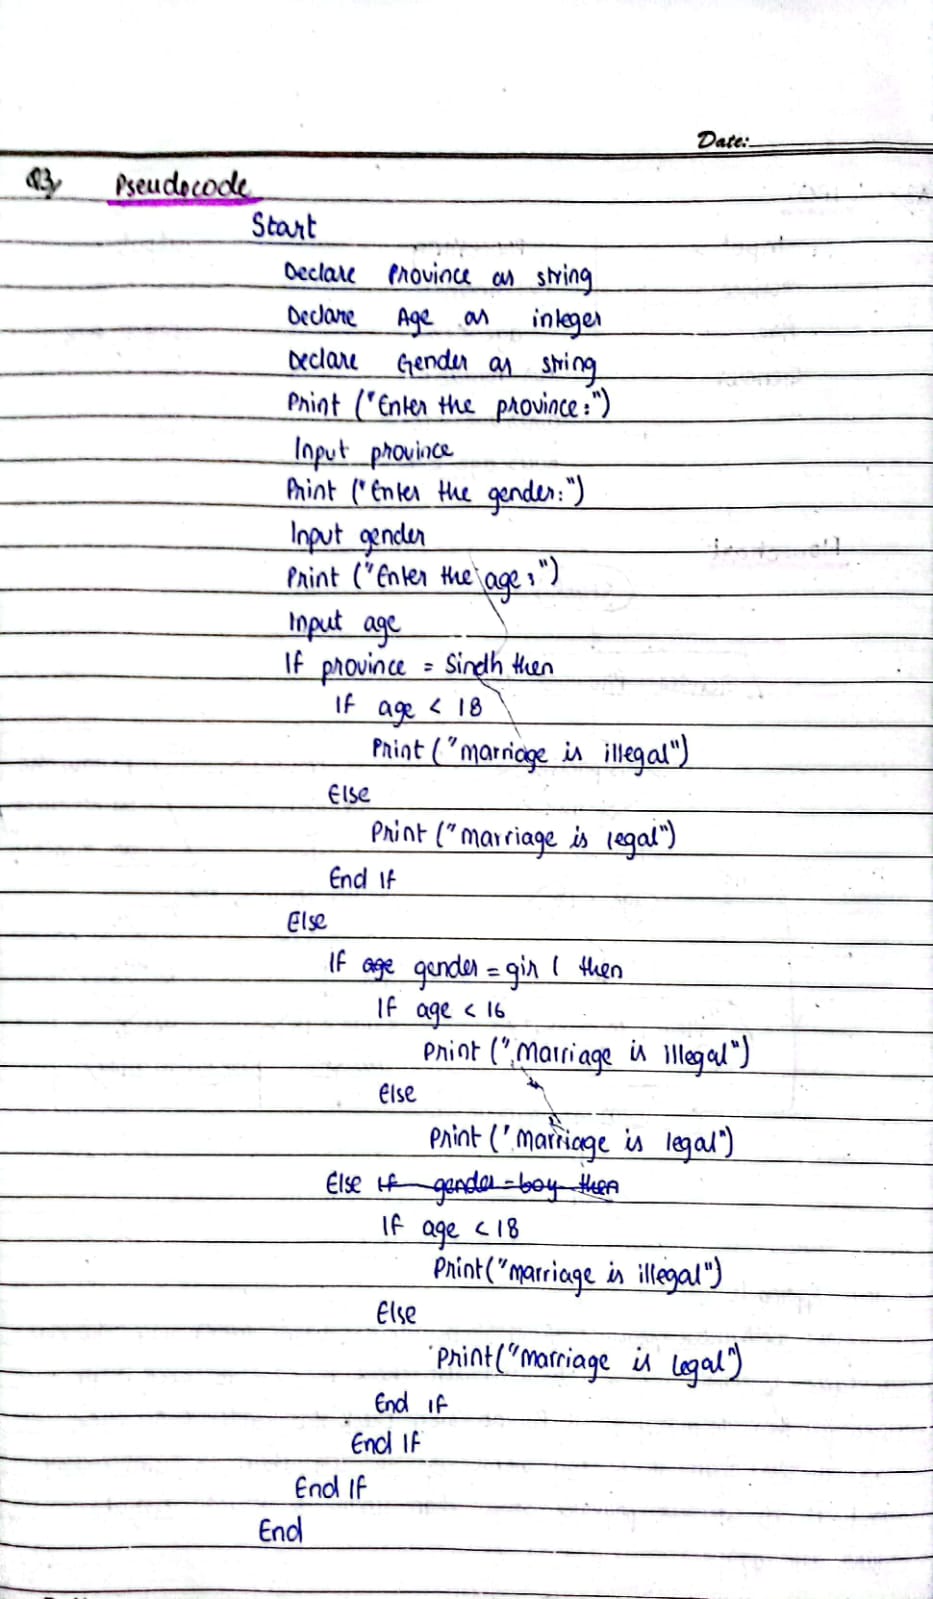 Date:
Q3, Pseudocode
Start
Declare Province as string
Declare Age as integer
Declare Gender as string
Print ("Enter the province:")
Input province
Print ("Enter the gender:")
Input gender
Print ("Enter the age:")
Input age
If province = Sindh then
If age < 18
Print ("marriage is illegal")
Else
Print ("marriage is legal")
End if
Else
If age gender = girl then
If age < 16
Print ("Marriage is illegal")
Else
Print ("marriage is legal")
Else if gender = boy then
If age < 18
Print("marriage is illegal")
Else
Print("marriage is legal")
End if
End If
End If
End